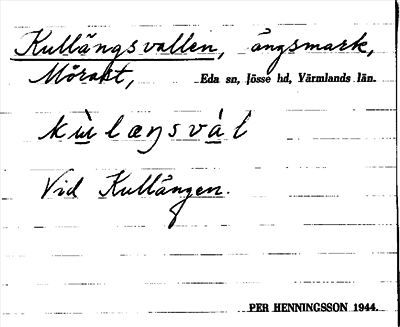 Kullängsvallen, ängsmark,
Mörakt, Eda sn, Jösse hd, Värmlands län.
kùlæŋsvàl
Vid Kullängen.
PER HENNINGSSON 1944.